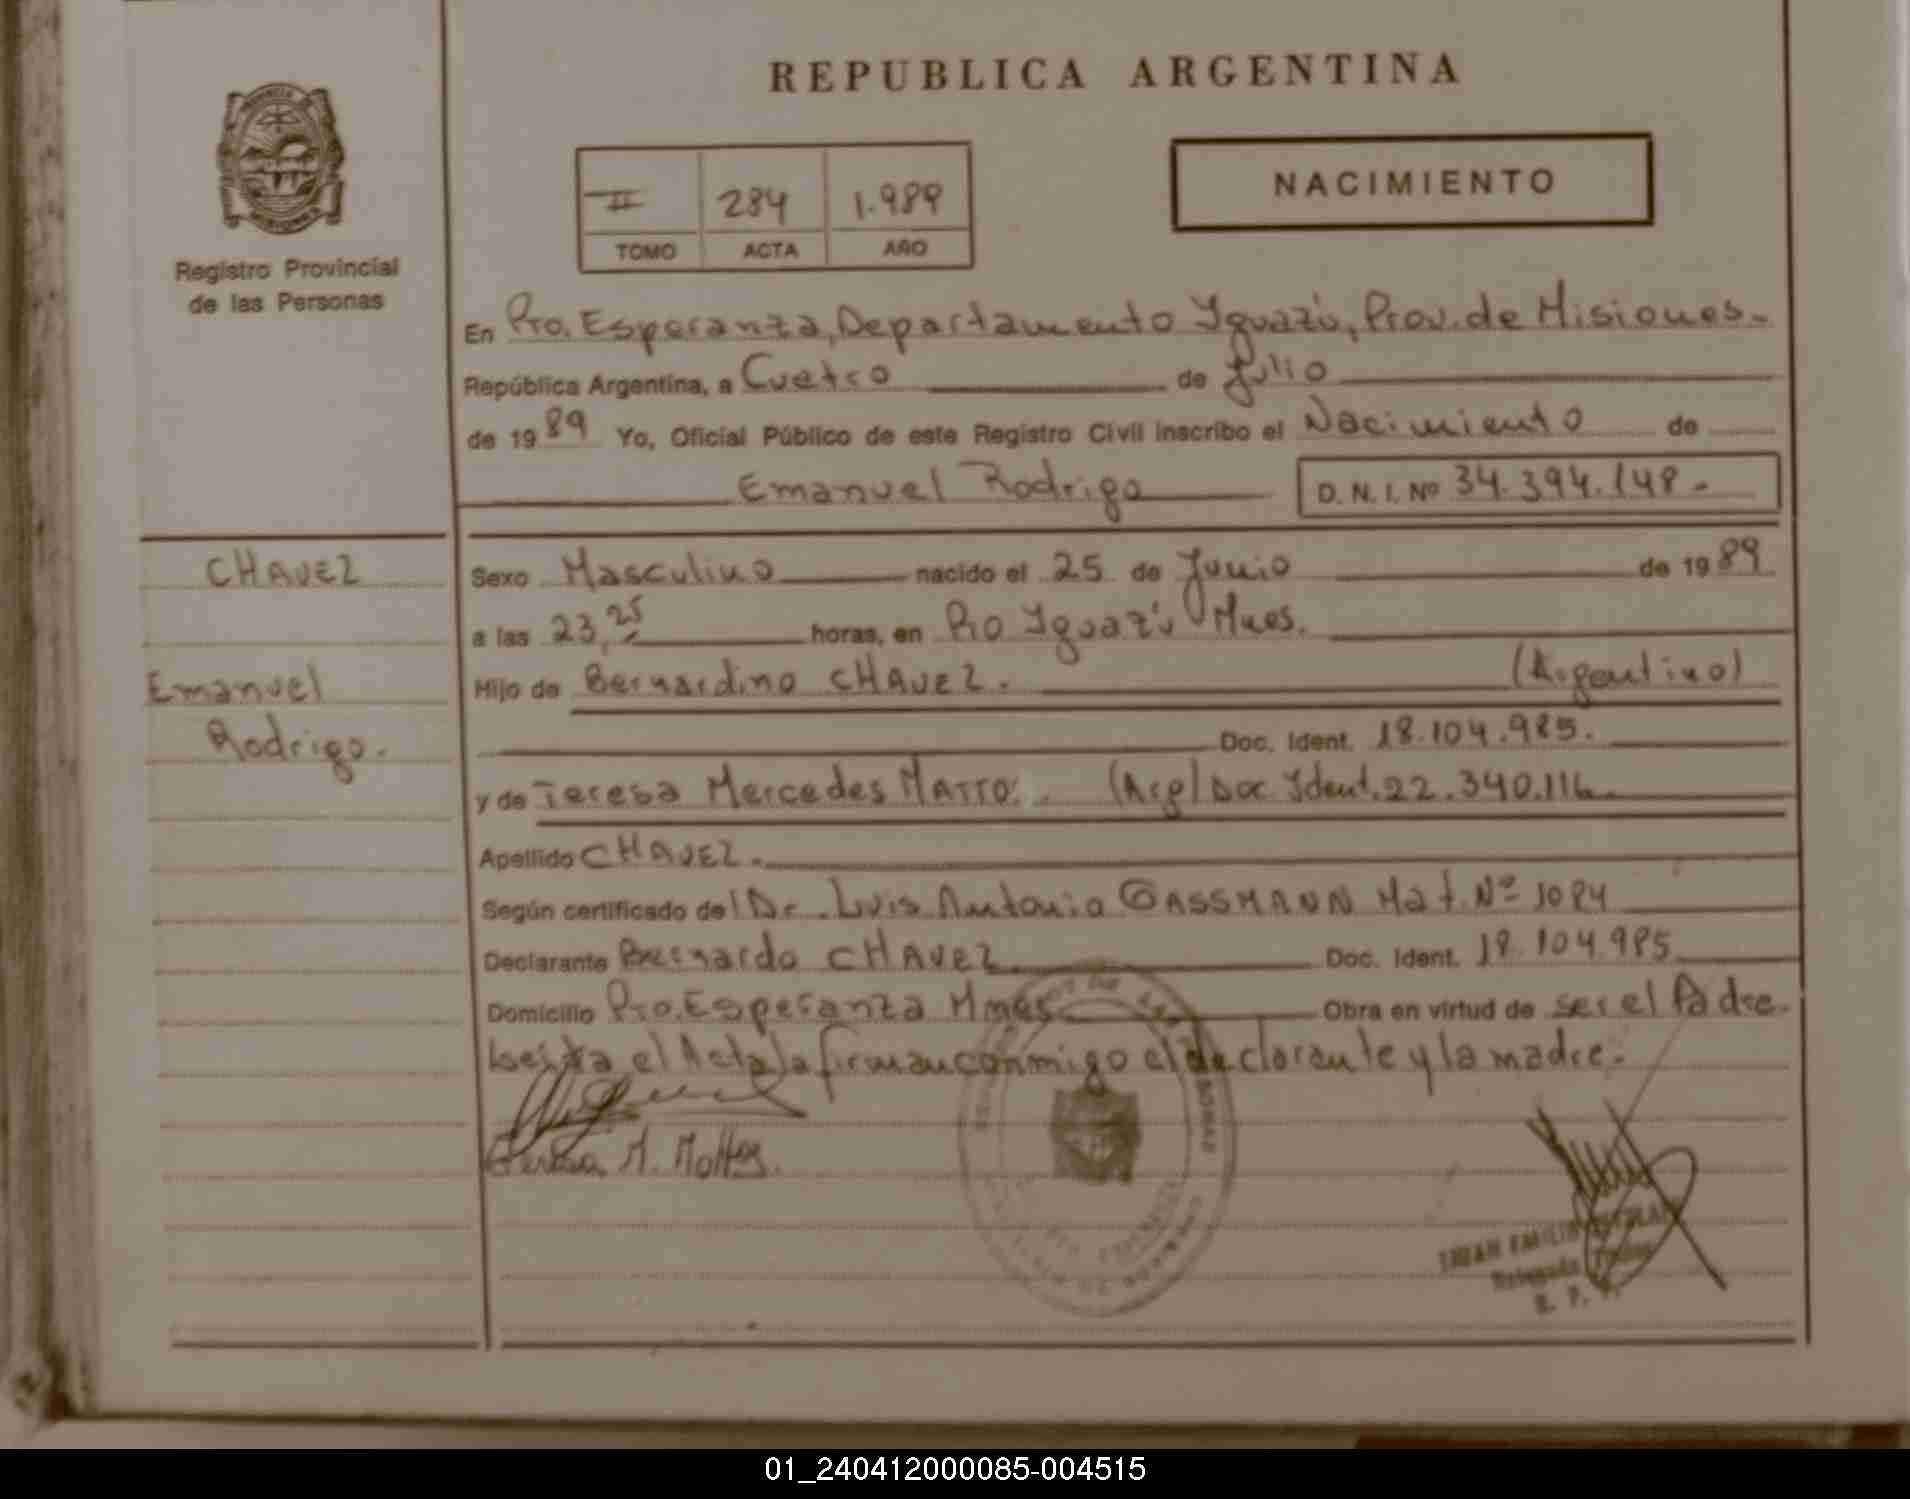 REPUBLICA ARGENTINA
PROVINCIA
MISIONES
Registro Provincial
de las Personas
II 284 1.989
TOMO ACTA AÑO
NACIMIENTO
En Pto. Esperanza, Departamento Yguazú, Prov. de Misiones.-
República Argentina, a Cuatro de Julio
de 1989 Yo, Oficial Público de este Registro Civil inscribo el Nacimiento de
Emanuel Rodrigo D. N. I. Nº 34.394.148.-
CHAVEZ
Emanuel
Rodrigo.
Sexo Masculino nacido el 25 de Junio de 1989
a las 23,25 horas, en Pto Yguazú Mnes.
Hijo de Bernardino CHAVEZ. (Argentino)
Doc. Ident. 18.104.985.
y de Teresa Mercedes (Arg) Doc Ydent. 22.340.116.
Apellido CHAVEZ.
Según certificado del Dr. Luis Antonio GASSMANN Mat. Nº 1084
Declarante Bernardo CHAVEZ. Doc. Ident. 18.104.985
Domicilio Pto. Esperanza Mnes. Obra en virtud de ser el Padre.
el Acta la firman conmigo el declarante y la madre.
M.
EMILIO
Delegado
R. P.
01_240412000085-004515